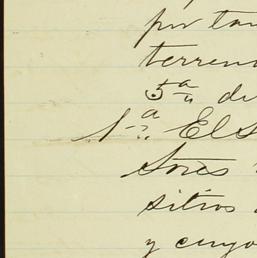 por tan
terreno
5ª de
1ª. El S
tores
sitios
y cuyo